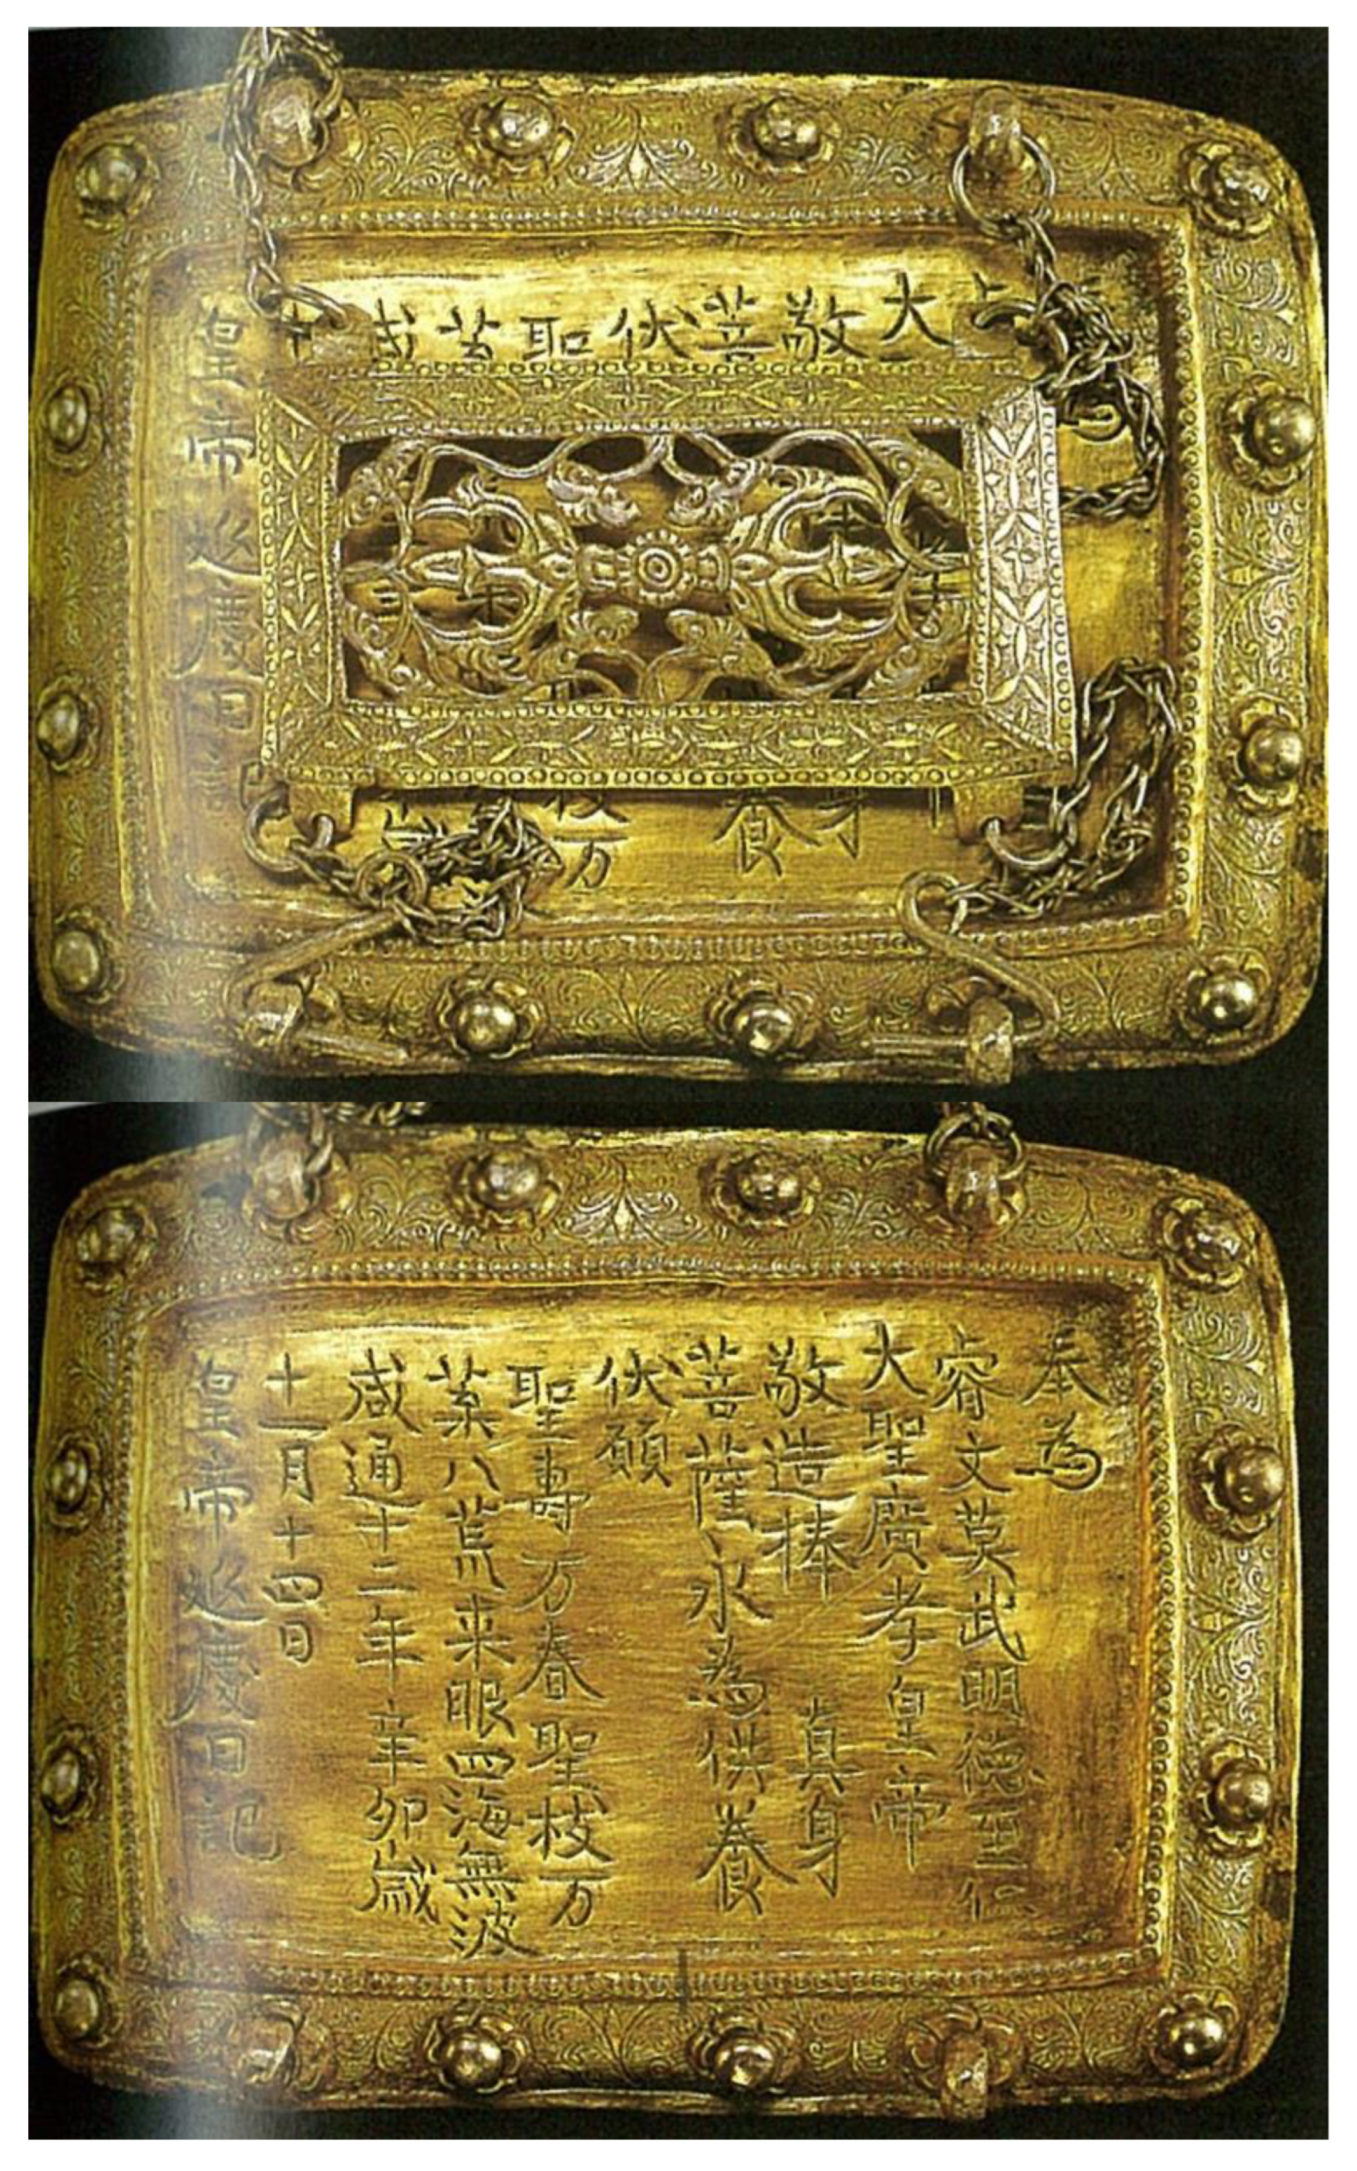 大
敬 身
菩 養
伏
聖 枝万
咸
皇帝延慶日
奉為
睿文英武明德至仁
大聖廣孝皇帝
敬造捧 真身
菩薩永為供養
伏願
聖壽万春聖枝万
葉八荒来服四海無波
咸通十二年辛卯歲
十一月十四日
皇帝延慶日記